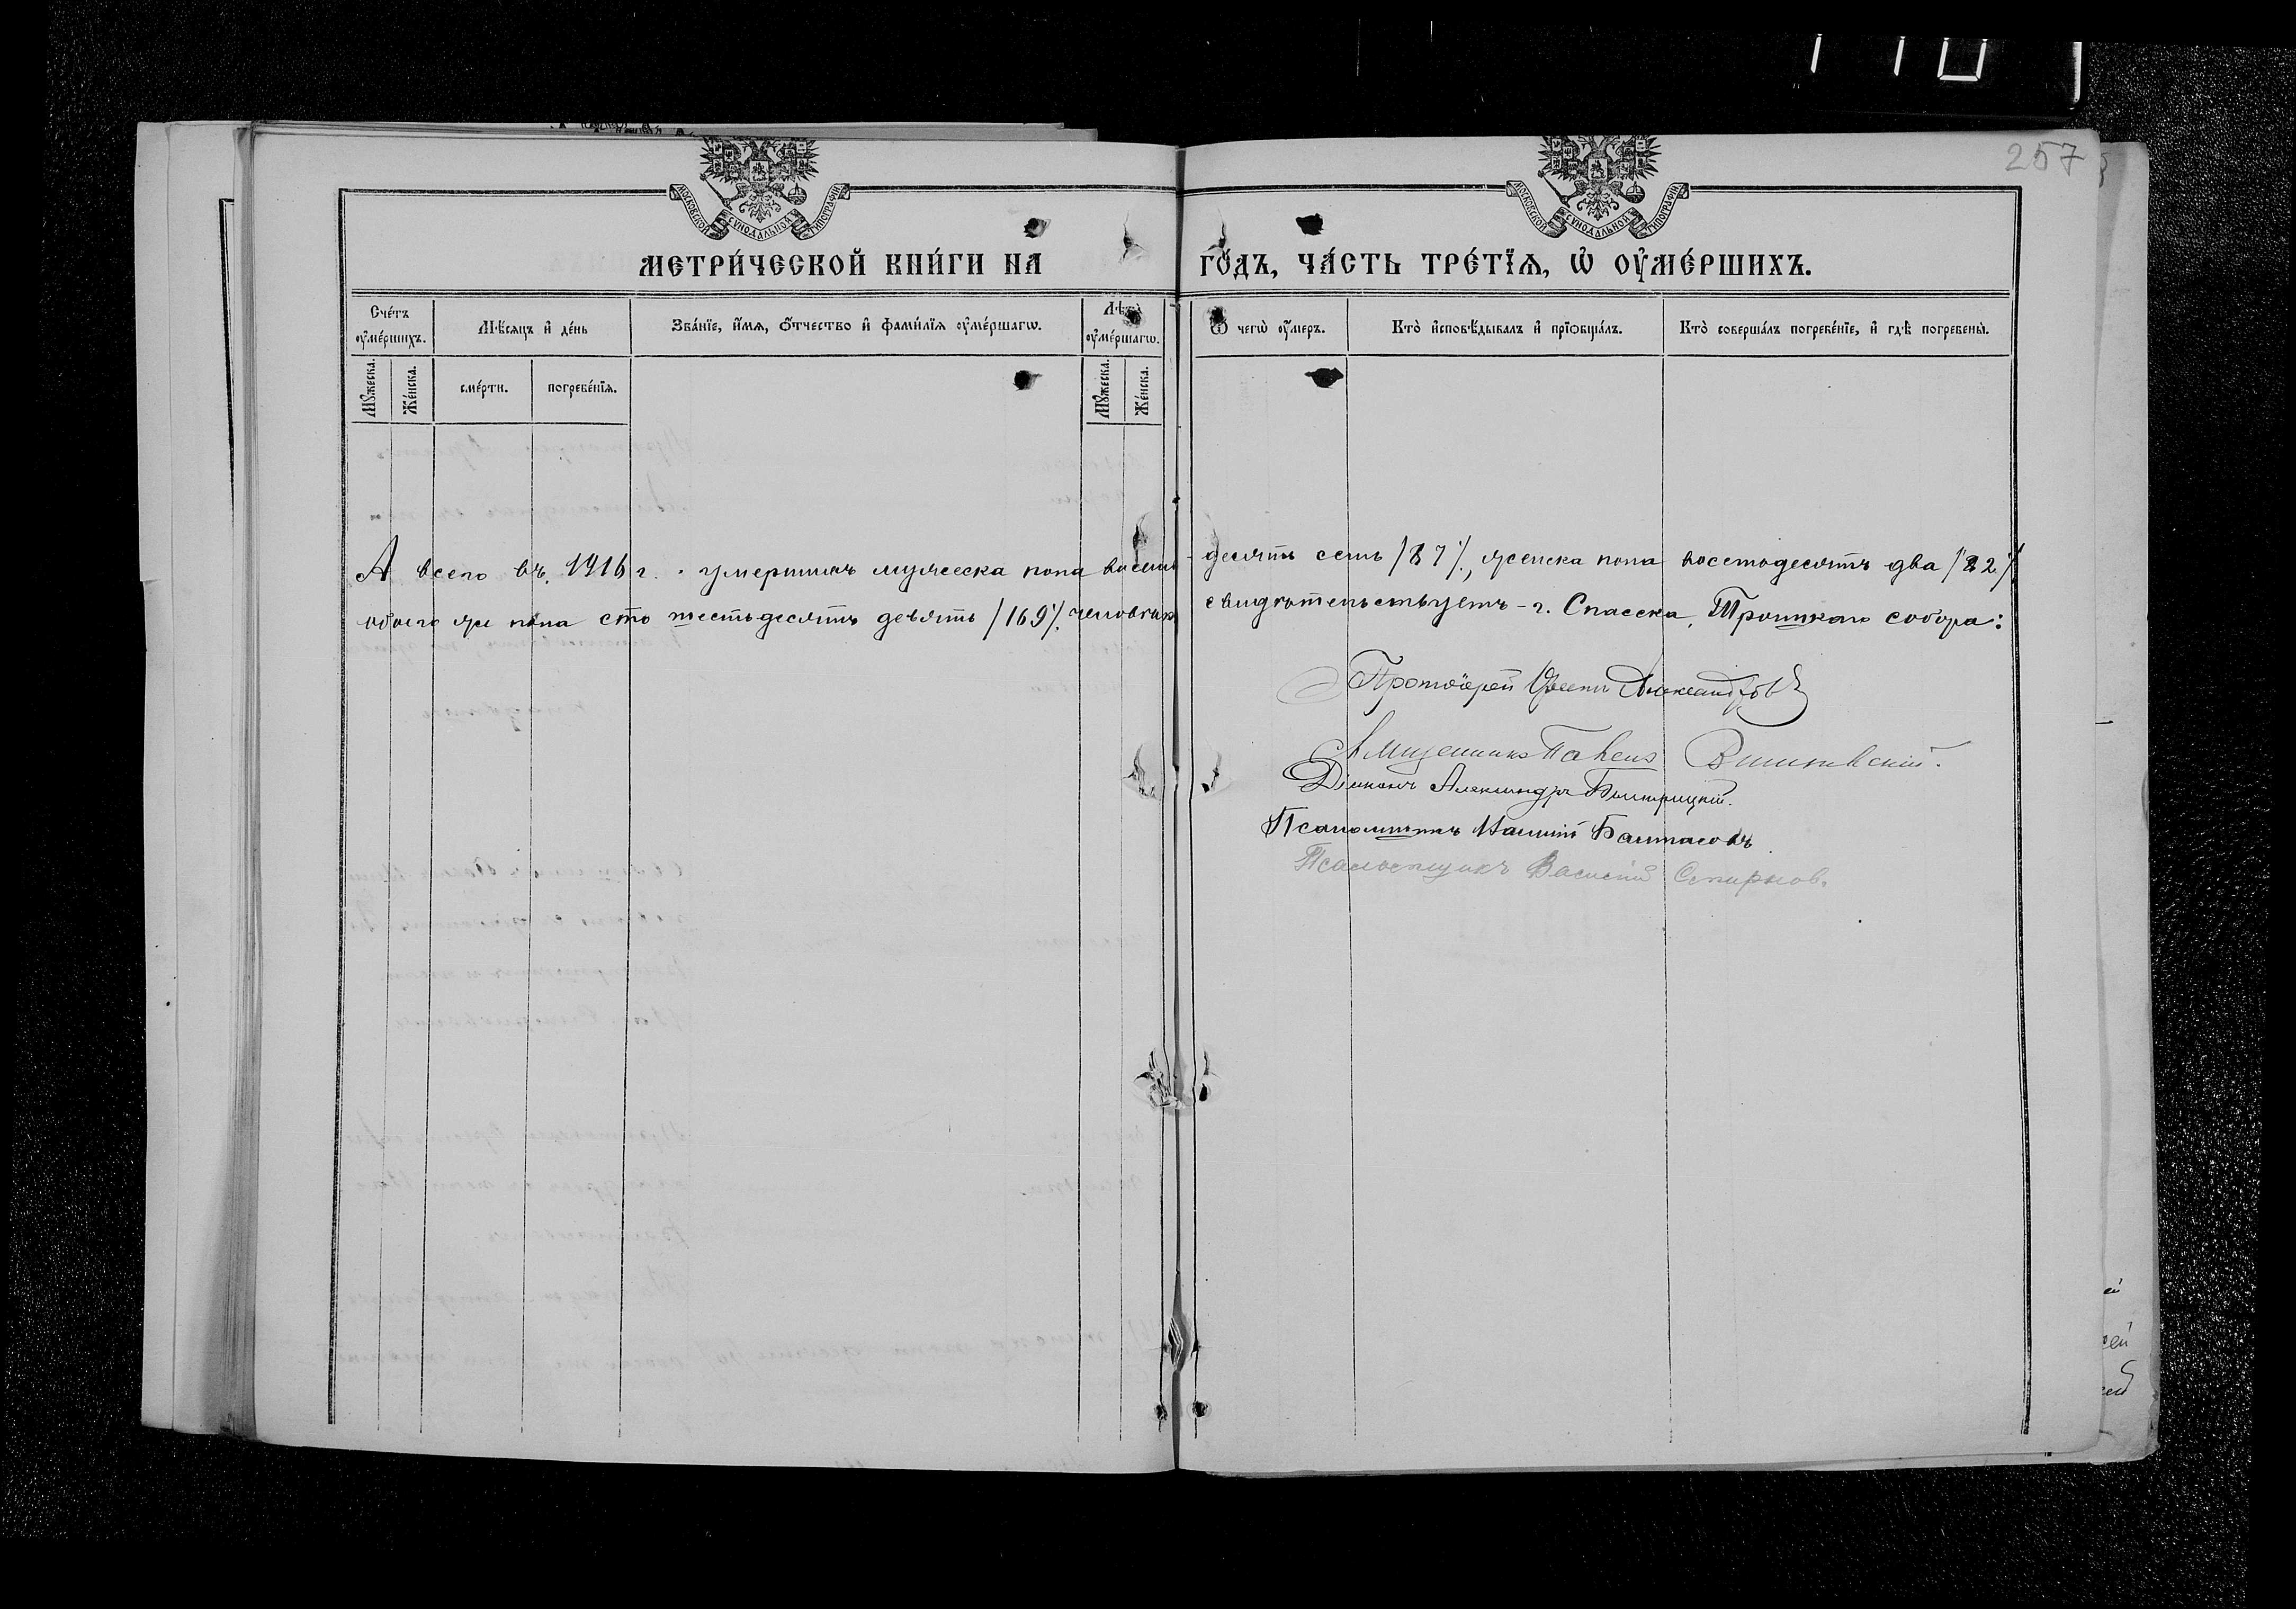 257
МОСКОВСКОЙ СУНОДАЛЬНОЙ ТИПОГРАФІИ
МОСКОВСКОЙ СУНОДАЛЬНОЙ ТИПОГРАФІИ
МЕТРИ́ЧЕСКОЙ КНИ́ГИ НА ГО́ДЪ, ЧА́СТЬ ТРЕ́ТЇѦ, Ѡ҆ ОУ҆МЕ́РШИХЪ.
Сче́тъ оу҆ме́ршихъ.
Мѣ́сѧцъ и҆ де́нь
Зва́нїе, и҆́мѧ, ѻ҆́тчество и҆ фами́лїѧ оу҆ме́ршагѡ.
Лѣ́та оу҆ме́ршагѡ.
Ѿ чегѡ̀ оу҆́меръ.
Кто̀ и҆сповѣ́дывалъ и҆ прїѡбща́лъ.
Кто̀ соверша́лъ погребе́нїе, и҆ гдѣ̀ погребены̀.
Мꙋ́жеска.
Же́нска.
сме́рти.
погребе́нїѧ.
Мꙋ́жеска.
Же́нска.
А всего въ 1916 г. умершихъ мужеска пола восемь-десятъ семь /87/., женска пола восемьдесятъ два /82/.
обоего же пола сто шестьдесятъ девять /169/. человѣкъ свидѣтельствуетъ - г. Спасска, Троицкаго собора:
Протоіерей Александровъ
Священникъ Павелъ
Діаконъ Александръ Быстрицкій.
Псаломщикъ
Псаломщикъ Василій Смирнов.